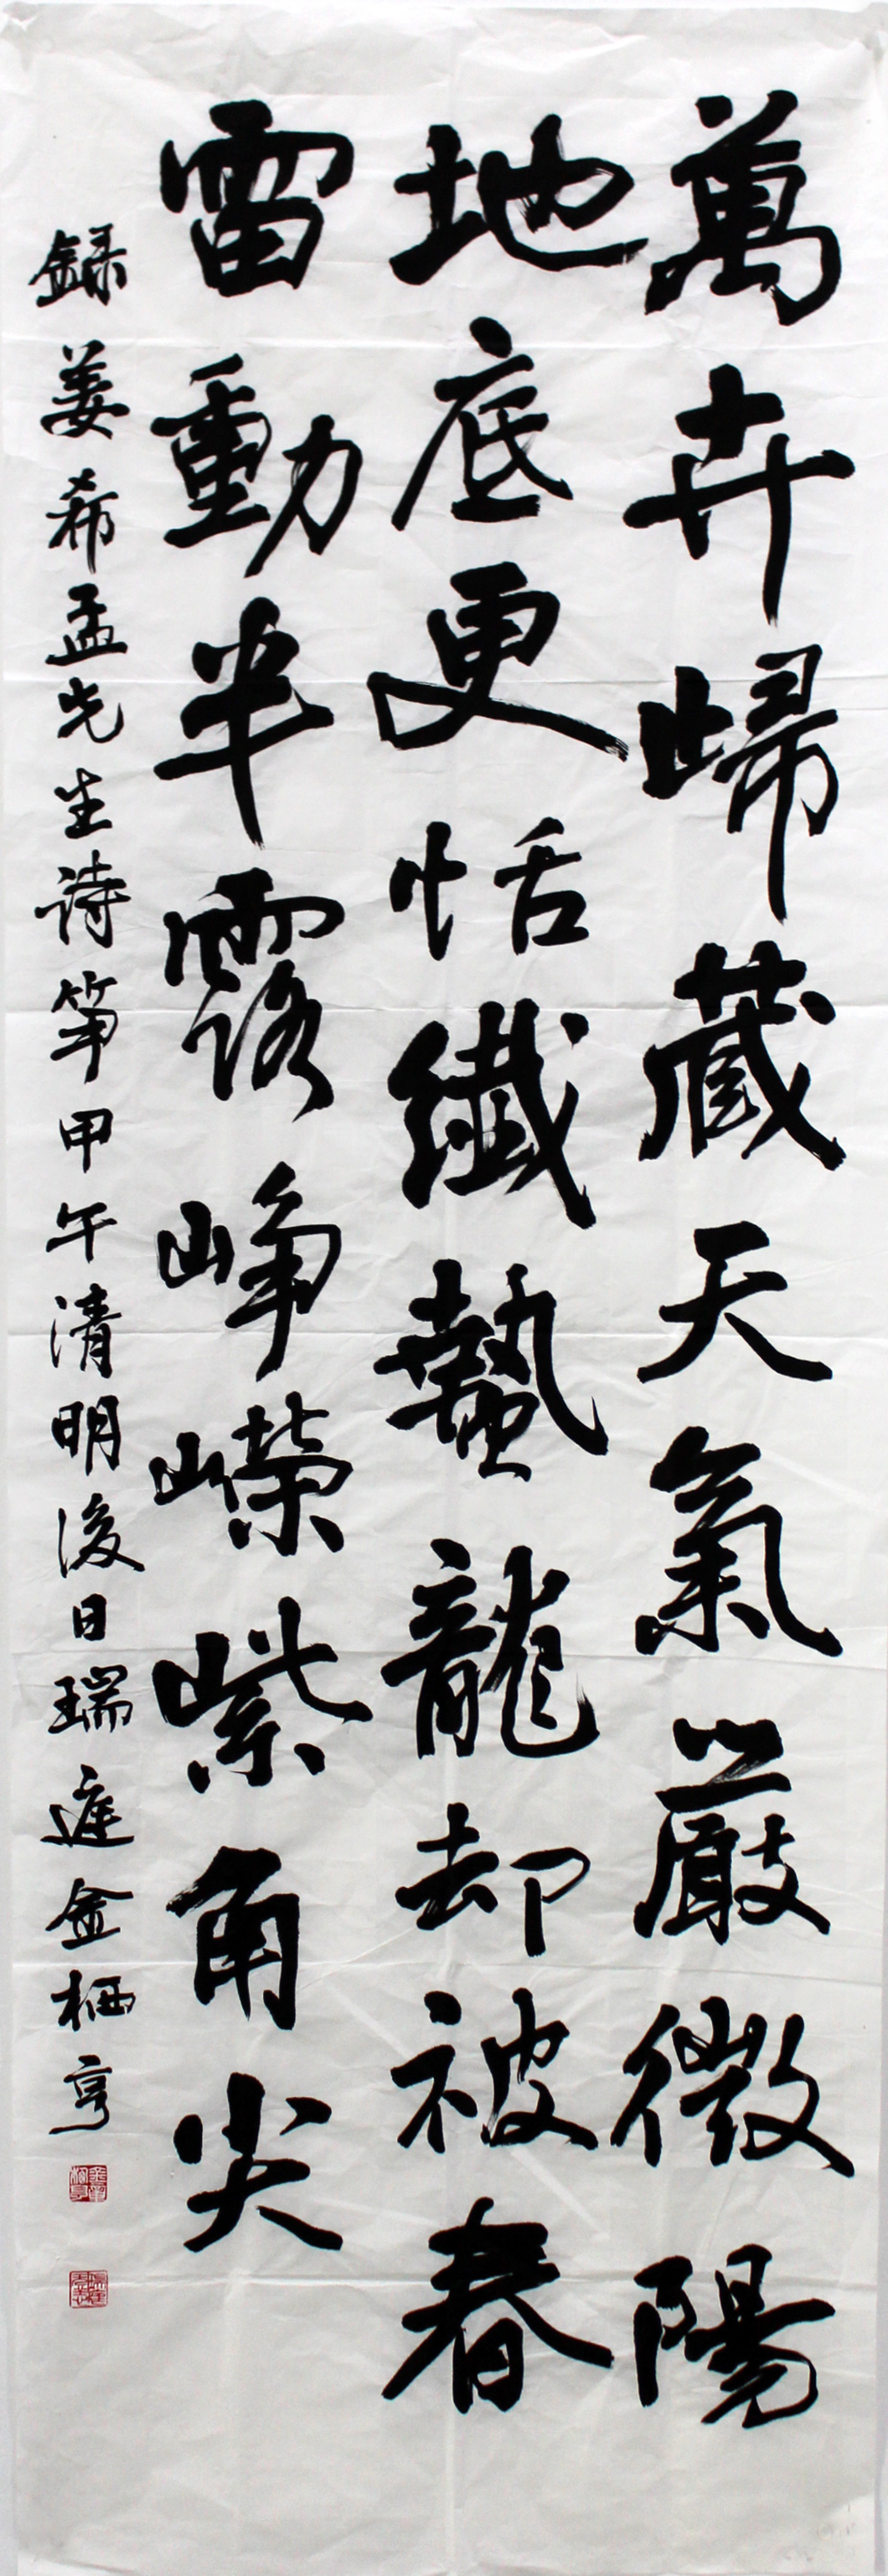 萬卉歸藏天氣嚴微陽
地底更恬纖蟄龍却被春
雷動半露崢嶸紫角尖
錄姜希孟先生詩笋甲午清明後日瑞遅金栖亨